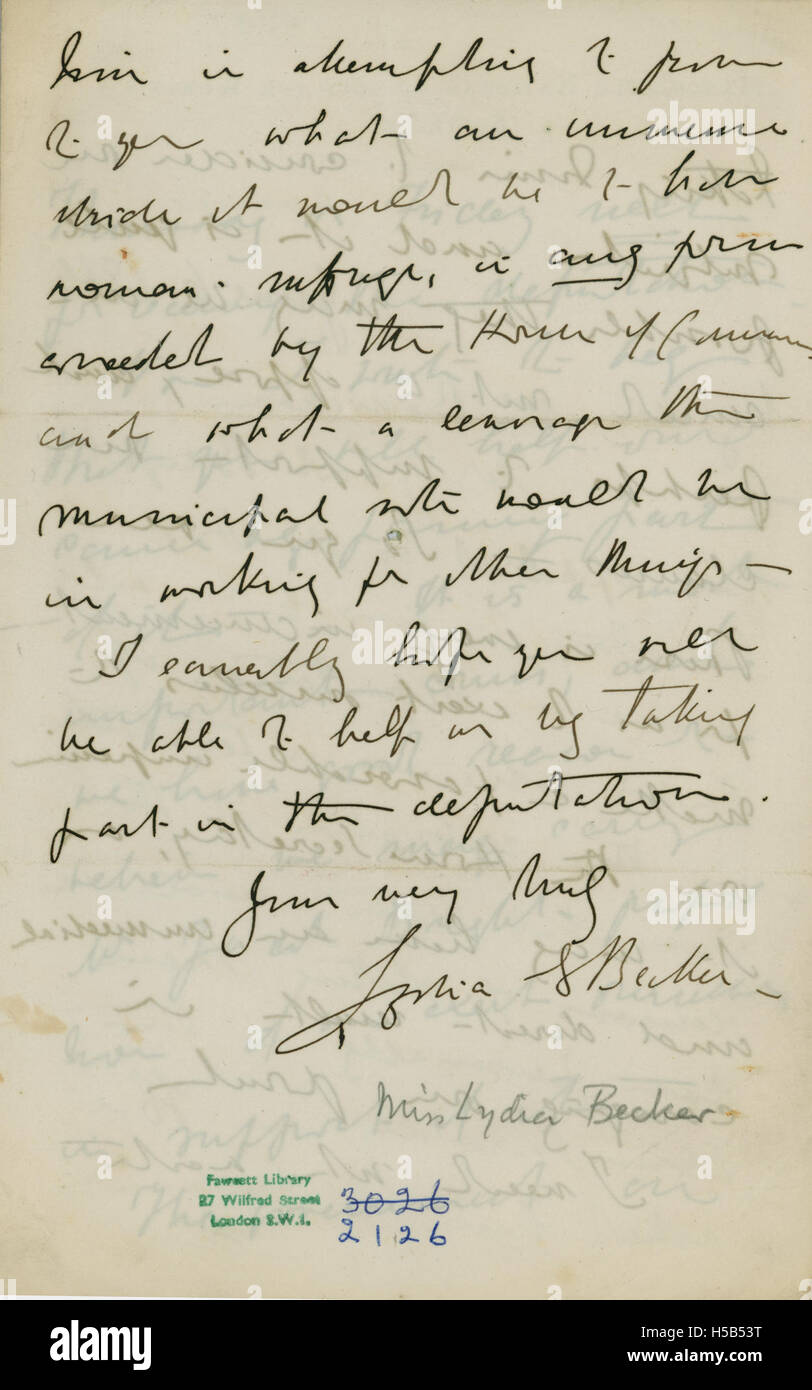 time in attempting to prove
to you what an immense
stride it would be to have
woman suffrage, in any form
conceded by the House of Commons
and what a leverage the
municipal vote would be
in working for other things —
I earnestly hope you will
be able to help us by taking
part in the deputation.
Yours very truly
Lydia E Becker —
Miss Lydia Becker
Fawcett Library
27 Wilfred Street
London S.W.1.
3026
2126
alamy
alamy
Image ID: H5B53T
www.alamy.com